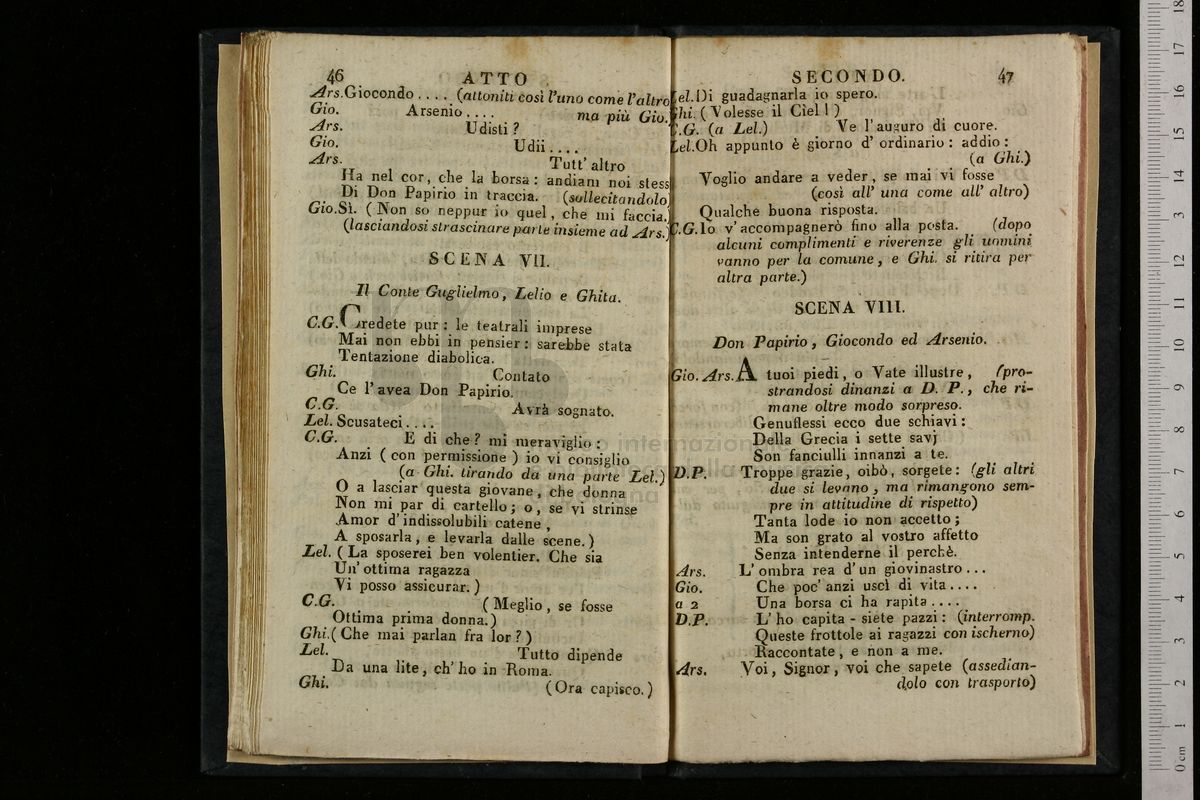 46 ATTO
Ars. Giocondo .... (attoniti così l'uno come l'altro
Gio. Arsenio .... ma più Gio.
Ars. Udisti ?
Gio. Udii ....
Ars. Tutt' altro
Ha nel cor, che la borsa : andiam noi stess
Di Don Papirio in traccia. (sollecitandolo)
Gio. Sì. ( Non so neppur io quel, che mi faccia.)
(lasciandosi strascinare parte insieme ad Ars.)
SCENA VII.
Il Conte Guglielmo, Lelio e Ghita.
C.G. Credete pur : le teatrali imprese
Mai non ebbi in pensier : sarebbe stata
Tentazione diabolica.
Ghi. Contato
Ce l' avea Don Papirio.
C.G. Avrà sognato.
Lel. Scusateci ....
C.G. E di che ? mi meraviglio :
Anzi ( con permissione ) io vi consiglio
(a Ghi. tirando da una parte Lel.)
O a lasciar questa giovane, che donna
Non mi par di cartello ; o, se vi strinse
Amor d' indissolubili catene,
A sposarla, e levarla dalle scene.)
Lel. ( La sposerei ben volentier. Che sia
Un' ottima ragazza
Vi posso assicurar. )
C.G. ( Meglio, se fosse
Ottima prima donna.)
Ghi. ( Che mai parlan fra lor ? )
Lel. Tutto dipende
Da una lite, ch' ho in Roma.
Ghi. (Ora capisco.)
SECONDO. 47
Lel. Di guadagnarla io spero.
Ghi. ( Volesse il Ciel ! )
C.G. (a Lel.) Ve l' auguro di cuore.
Lel. Oh appunto è giorno d' ordinario : addio :
(a Ghi.)
Voglio andare a veder, se mai vi fosse
(così all' una come all' altro)
Qualche buona risposta.
C.G. Io v' accompagnerò fino alla posta. (dopo
alcuni complimenti e riverenze gli uomini
vanno per la comune, e Ghi. si ritira per
altra parte.)
SCENA VIII.
Don Papirio, Giocondo ed Arsenio.
Gio. Ars. A tuoi piedi, o Vate illustre, (pro-
strandosi dinanzi a D. P., che ri-
mane oltre modo sorpreso.
Genuflessi ecco due schiavi :
Della Grecia i sette savj
Son fanciulli innanzi a te.
D.P. Troppe grazie, oibò, sorgete : (gli altri
due si levano, ma rimangono sem-
pre in attitudine di rispetto)
Tanta lode io non accetto ;
Ma son grato al vostro affetto
Senza intenderne il perchè.
Ars. L' ombra rea d' un giovinastro ...
Gio. Che poc' anzi uscì di vita ....
a 2 Una borsa ci ha rapita ....
D.P. L' ho capita - siete pazzi : (interromp.
Queste frottole ai ragazzi con ischerno)
Raccontate, e non a me.
Ars. Voi, Signor, voi che sapete (assedian-
dolo con trasporto)